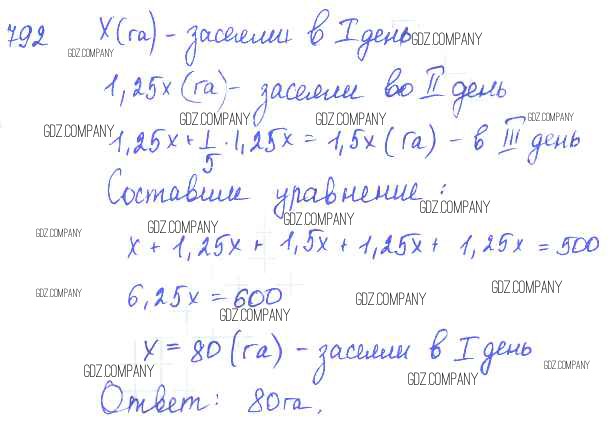 792 x(га) - засеяли в I день GDZ.COMPANY
GDZ.COMPANY
1,25x(га) - засеяли во II день
GDZ.COMPANY GDZ.COMPANY GDZ.COMPANY
GDZ.COMPANY 1,25x + 1/5 · 1,25x = 1,5x (га) - в III день
Составим уравнение:
GDZ.COMPANY
GDZ.COMPANY GDZ.COMPANY GDZ.COMPANY
x + 1,25x + 1,5x + 1,25x + 1,25x = 500
GDZ.COMPANY GDZ.COMPANY GDZ.COMPANY
6,25x = 600
GDZ.COMPANY
x = 80 (га) - засеяли в I день
GDZ.COMPANY GDZ.COMPANY GDZ.COMPANY
Ответ: 80га.